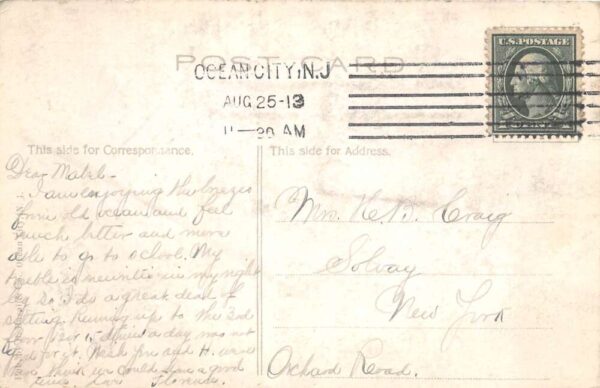 POST CARD
U.S. POSTAGE
OCEAN CITY, N.J
AUG 25-13
11—30 AM
This side for Correspondence.
This side for Address.
Dear Mabel-
I am enjoying the breezes
from old ocean and feel
much better and more
able to go to school. My
trouble is neuritis in my right
leg so I do a great deal of
sitting. Running up to the 3rd
floor 15 times a day was not
good for it. Wish you and H. were
here think we could have a good
time. Love Florence
Mrs. H. B. Craig
Solvay
New York
Orchard Road.